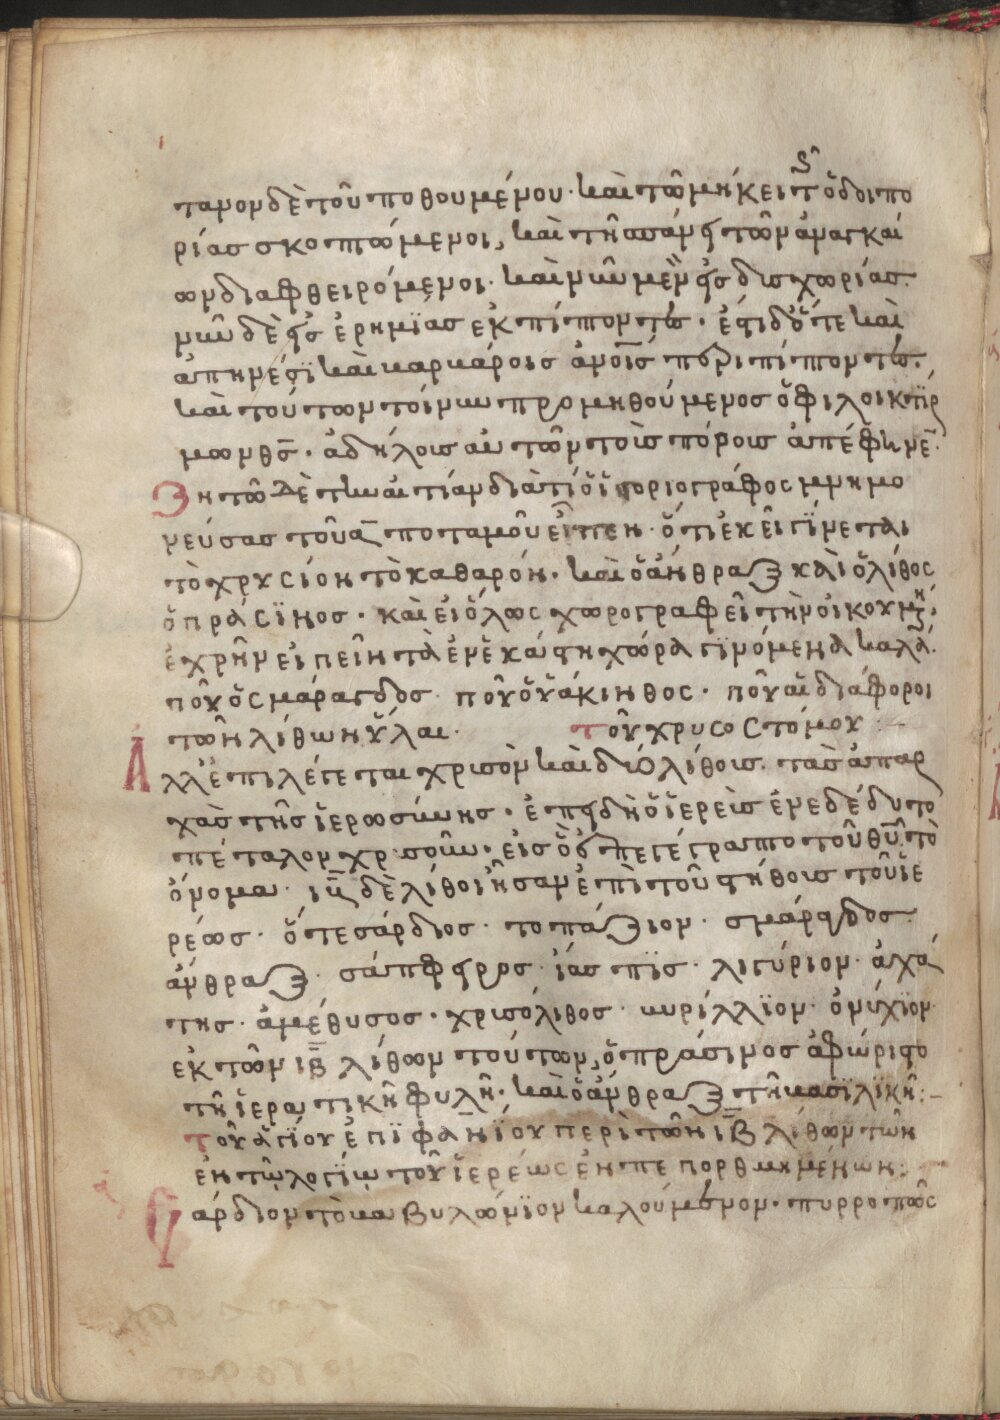 τανον δὲ τοῦ ποθουμένου· καὶ τῶ μήκει τῆς ὁδοιπο
ρίας σκοπτώμενοι, καὶ τῆ σπάνει τῶν ἀναγκαί
ων διαφθειρόμενοι· καὶ νῦν μὲν εἰς δυσχωρίας.
νῦν δὲ εἰς ἐρημΐας ἐκπίπτοντες· ἐπιδότε καὶ
ἀπηνέσϊ καὶ βαρβάροις ἀνοις περιπίπτοντες.
καὶ τούτων τοίνυν προμηθούμενος ὁ φιλοικτίρ
μων θς· ἀδήλοις αὐτῶν τοῖς πόροις ἀπέφηνε.
Ζητῶ δὲ τὴν αἰτίαν διατί ὁ ἱστοριογράφος μνημο
νεύσας τοῦ α ποταμοῦ εἶπεν· ὅτι ἐκεῖ γΐνεται
τὸ χρυσίον τὸ καθαρόν· καὶ ὁ ἄνθραξ καὶ ὁ λίθος
ὁ πράσϊνος· καὶ εἰ ὅλως χωρογραφεῖ τὴν οἰκουμην·
ἐχρῆν εἰπεῖν τὰ ἐν ἑκάστη χώρα γϊνόμενα καλά.
ποῦ ὁ σμάραγδος· ποῦ ὁ ὑάκινθος· ποῦ αἱ διάφοροι
τῶν λίθων ὗλαι· τοῦ χρυσοστόμου
Ἀλλ' ἐπιλέγεται χρυσὸν καὶ δι' ὃ λίθοις. τὰς ἀπαρ
χὰς τῆς ἱερωσύνης· ἐπειδὴ ὁ ἱερεὺς ἐνεδέδυτο
πέταλον χρυσοῦν· εἰς ὃ ἐπεγέγραπτο τοῦ θυ τὸ
ὄνομα· ιβ δὲ λίθοι ἦσαν ἐπὶ τοῦ στήθους τοῦ ἱε
ρέως· ὅ τε σάρδιος· τοπάζιον· σμάραγδος·
ἄνθραξ· σάπφειρος· ἴασπϊς· λιγύριον· ἀχά
της· ἀμέθυσος· χρυσόλιθος· βυρίλλϊον· ὀνύχϊον·
ἐκ τῶν ιβ λίθων τούτων, ὁ πράσινος ἀφώριστο
τῆ ἱερατικῆ φυλῆ· καὶ ὁ ἄνθραξ τῆ βασιλϊκῆ:
τοῦ ἁγΐου ἐπϊφανΐου περὶ τῶν ιβ λίθων τῶν
ἐν τῶ λογΐω τοῦ ἱερέως ἐνπεπορθωμένων:
Σάρδιον τὸ βαβυλώνϊον καλούμενον· πυρροπῶς